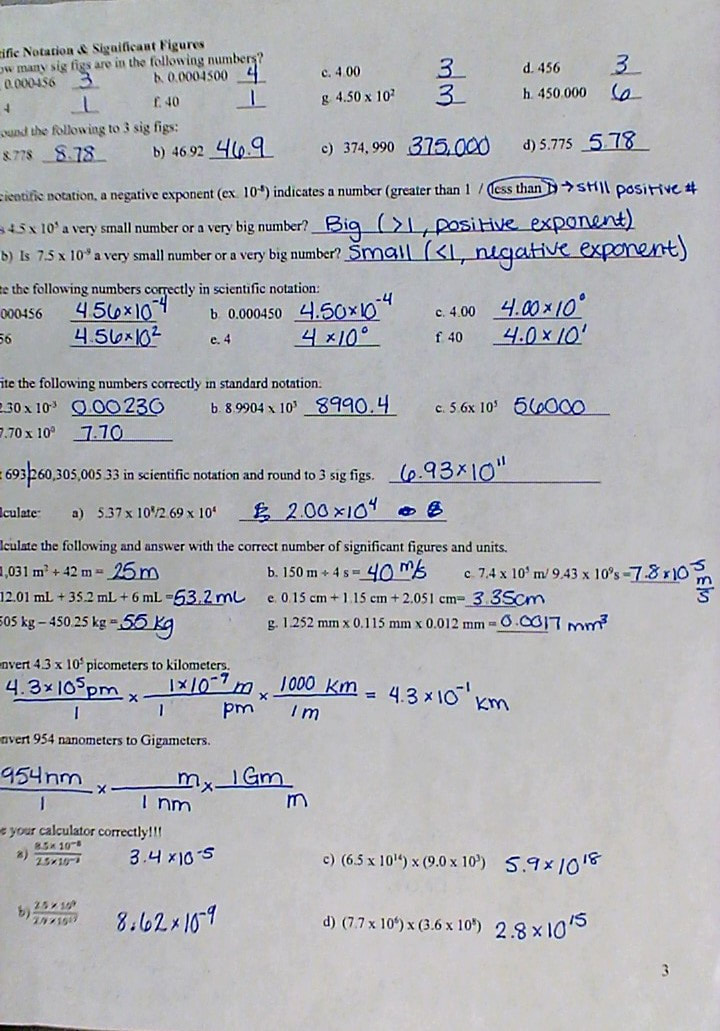 ific Notation & Significant Figures
ow many sig figs are in the following numbers?
0.000456 3 b. 0.0004500 4 c. 4.00 3 d. 456 3
4 1 f. 40 1 g. 4.50 x 10² 3 h. 450.000 6
ound the following to 3 sig figs:
8.778 8.78 b) 46.92 46.9 c) 374,990 375,000 d) 5.775 5.78
cientific notation, a negative exponent (ex. 10⁻⁸) indicates a number (greater than 1 / less than 1) → still positive #
s 4.5 x 10⁵ a very small number or a very big number? Big (>1, positive exponent)
b) Is 7.5 x 10⁻⁹ a very small number or a very big number? Small (<1, negative exponent)
te the following numbers correctly in scientific notation:
000456 4.56x10⁻⁴ b. 0.000450 4.50x10⁻⁴ c. 4.00 4.00 x 10⁰
56 4.56x10² e. 4 4 x10⁰ f. 40 4.0 x 10¹
ite the following numbers correctly in standard notation.
2.30 x 10⁻³ 0.00230 b. 8.9904 x 10³ 8990.4 c. 5.6x 10⁵ 56000
7.70 x 10⁰ 7.70
693,260,305,005.33 in scientific notation and round to 3 sig figs. 6.93x10¹¹
lculate: a) 5.37 x 10⁸/2.69 x 10⁴ 2.00 x10⁴
lculate the following and answer with the correct number of significant figures and units.
1,031 m² ÷ 42 m = 25m b. 150 m ÷ 4 s = 40 m/s c. 7.4 x 10⁵ m/ 9.43 x 10⁹s = 7.8 x10⁻⁵ m/s
12.01 mL + 35.2 mL + 6 mL = 53.2mL e. 0.15 cm + 1.15 cm + 2.051 cm= 3.35cm
505 kg – 450.25 kg = 55 kg g. 1.252 mm x 0.115 mm x 0.012 mm = 0.0017 mm³
nvert 4.3 x 10⁵ picometers to kilometers.
4.3x10⁵pm/1 x 1x10⁻⁹ m/1 pm x 1000 km/1m = 4.3 x10⁻¹ km
nvert 954 nanometers to Gigameters.
954nm/1 x m/1 nm x 1Gm/m
e your calculator correctly!!!
a) 3.4 x10⁻⁵ c) (6.5 x 10¹⁴) x (9.0 x 10³) 5.9x10¹⁸
b) 8.62x10⁻⁹ d) (7.7 x 10⁶) x (3.6 x 10⁸) 2.8x10¹⁵
3